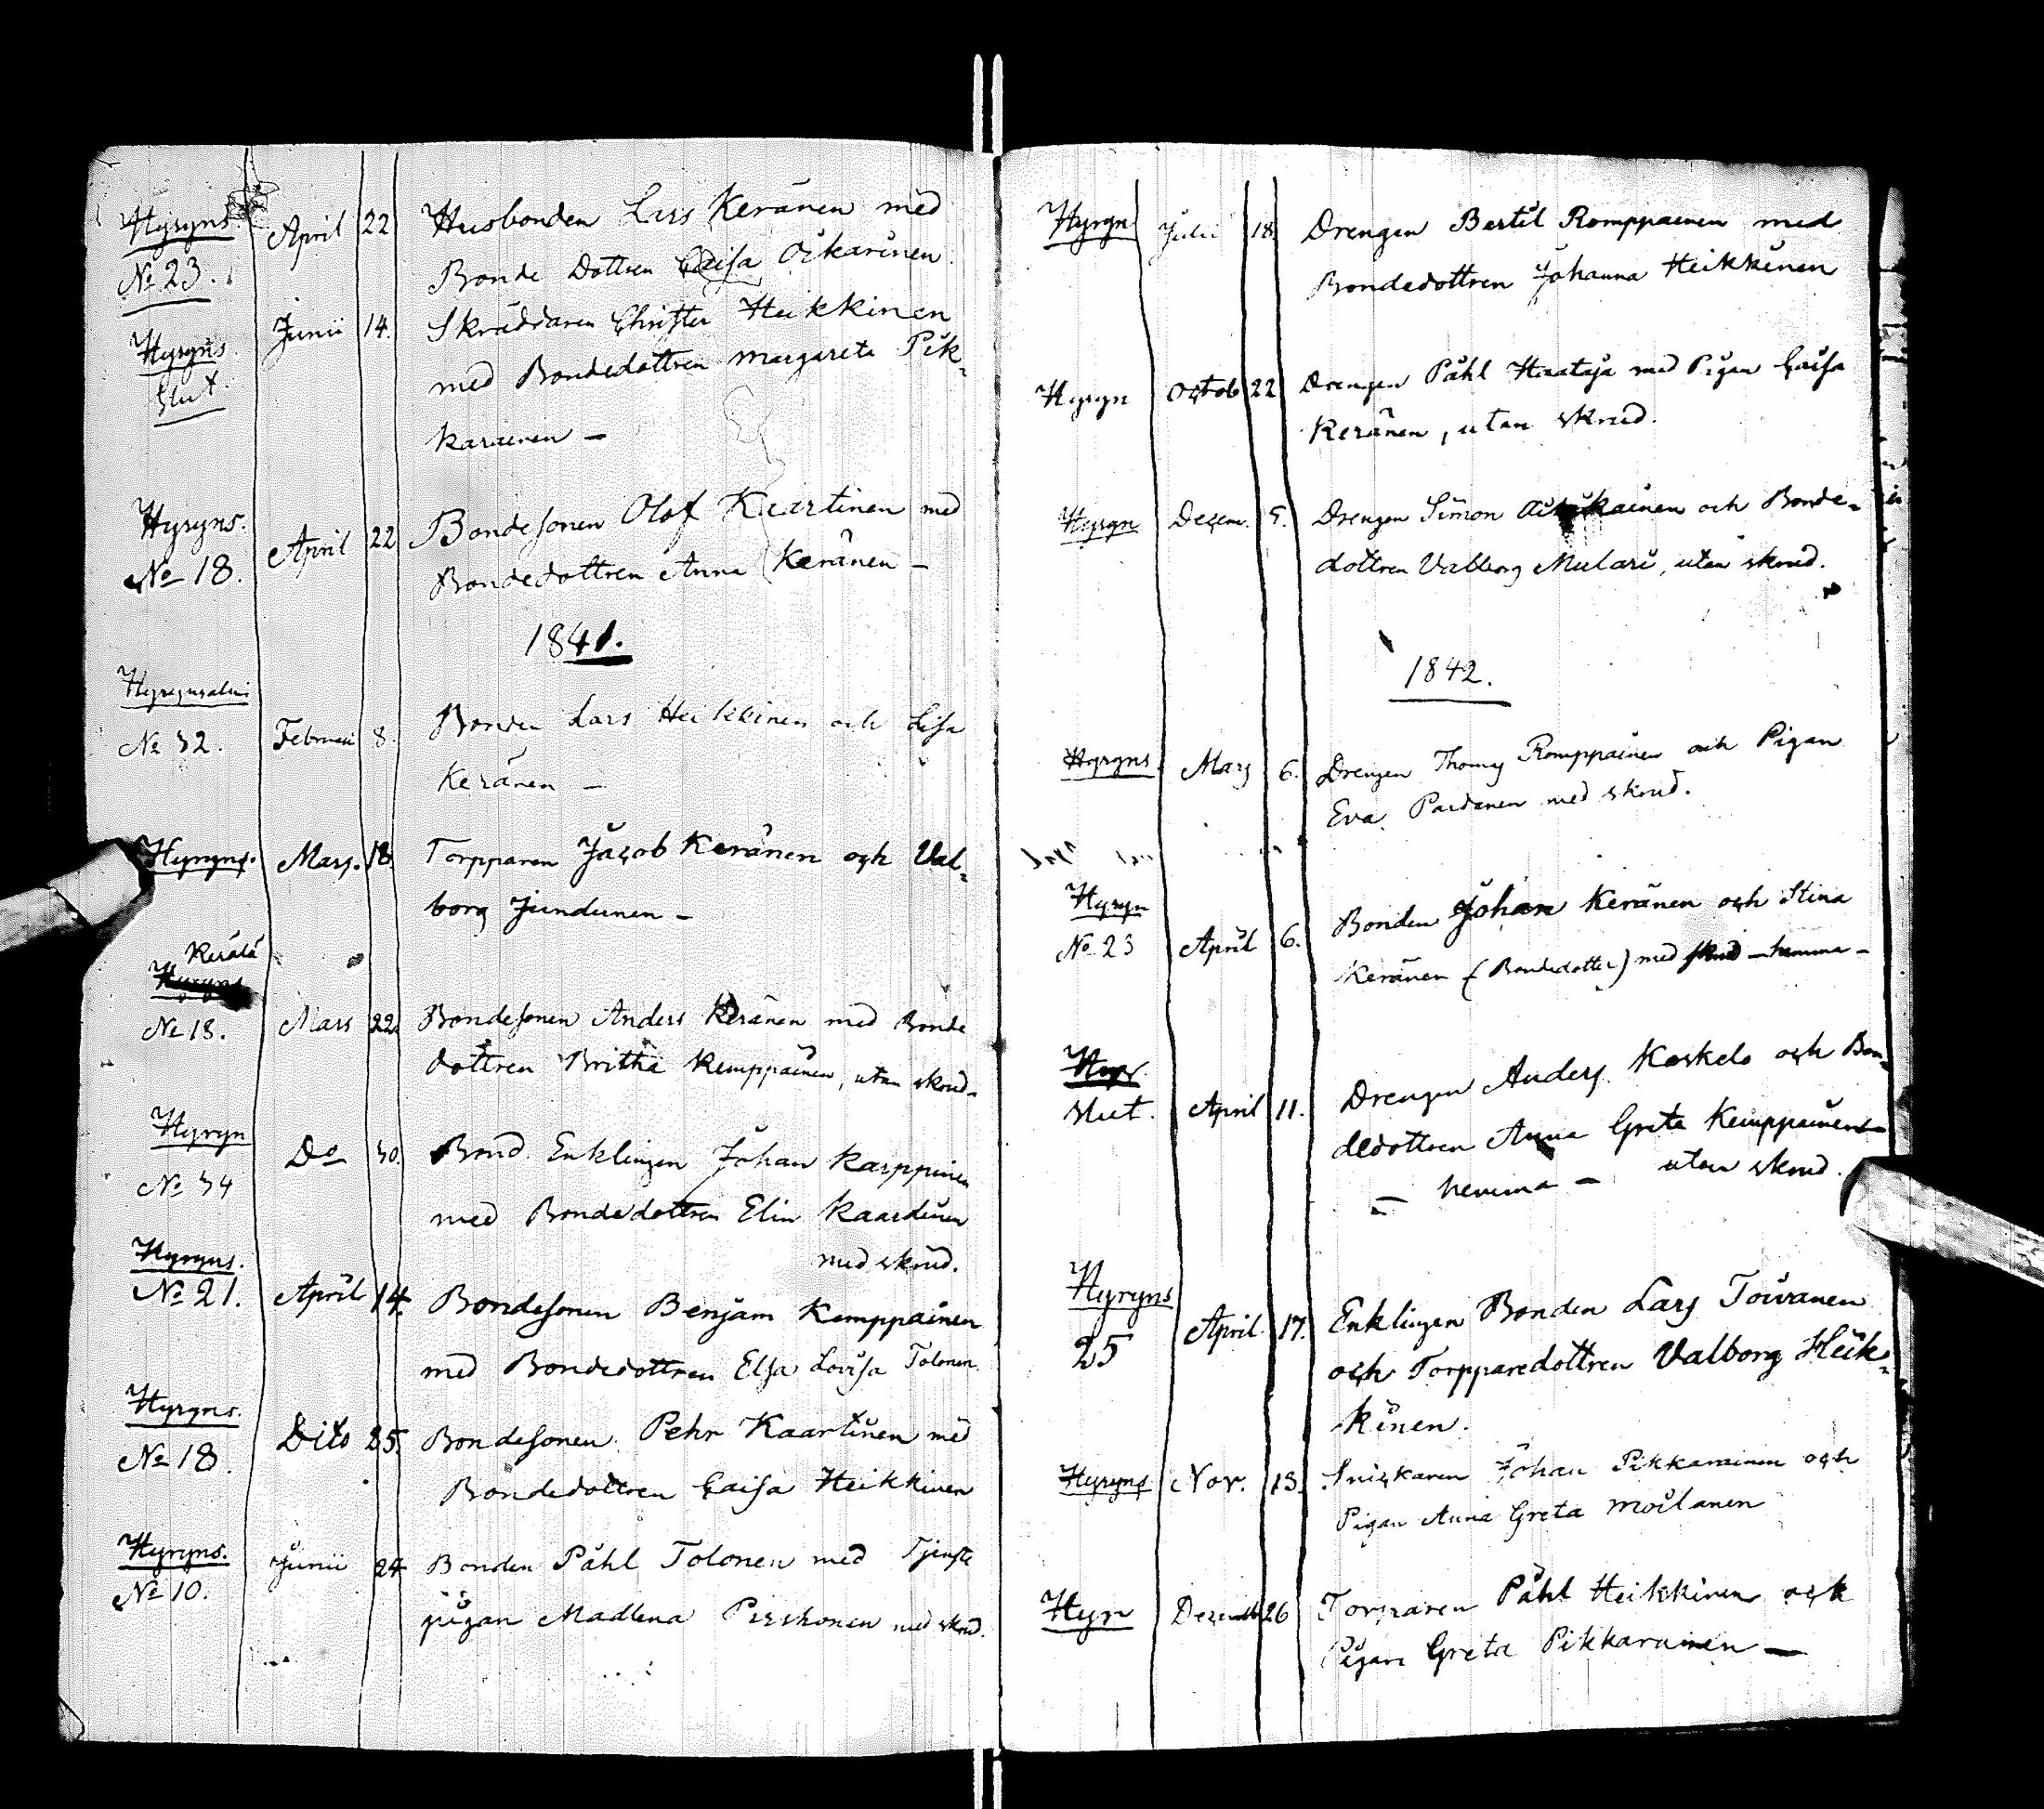 Hyryns. April 22 Husbonden Lars Keränen med
No 23. Bonde Dottren Caisa Oikarinen
Hyryns Junii 14. Skräddaren Christer Heikkinen
Slut. med Bondedottren Margareta Pik-
karainen —
Hyryns. April 22 Bondesonen Olof Kaartinen med
No 18. Bondedottren Anna Keränen —
1841.
Hyrynsalmi
No 32. Februari 8. Bonden Lars Heikkinen och Lisa
Keränen —
Hyryns. Mars. 18. Torpparen Jacob Keränen och Val-
borg Jundunen —
Kerälä
Hyryns
No 18. Mars 22. Bondesonen Anders Keränen med Bonde
dottren Britha Kemppainen, utan skrud.
Hyryn Do 30. Bond. Enklingen Johan Karppinen
No 34 med Bondedottren Elin Kaardinen
med skrud.
Hyryns.
No 21. April 14. Bondesonen Benjam Kemppainen
med Bondedottren Elsa Lovisa Tolonen.
Hyryns. Dito 25. Bondesonen Pehr Kaartinen med
No 18. Bondedottren Caisa Heikkinen
Hyryns. Junii 24 Bonden Påhl Tolonen med Tjenste
No 10. pigan Madlena Perskonen med skrud.
Hyryn Julii 18. Drengen Bertil Romppainen med
Bondedottren Johanna Heikkinen
Hyryn Octob 22 Drengen Påhl Haataja med Pigan Caisa
Keränen, utan skrud.
Hyryn Decem. 5. Drengen Simon och Bonde-
dottren Valborg Mulari, utan skrud.
1842.
Hyryns. Mars 6. Drengen Thomas Romppainen och Pigan
Eva Pardanen med skrud.
Hyryn
No 23 April 6. Bonden Johan Keränen och Stina
Keränen (Bondedotter) med skrud — hemma —
Hyr
slut. April 11. Drengen Anders Koskelo och Bon-
dedottren Anna Greta Kemppainen —
— hemma — utan skrud.
Hyryns
25 April 17. Enklingen Bonden Lars Toivanen
och Torpparedottren Valborg Heik-
kinen.
Hyryns Nov. 13. Snickaren Johan Pikkarainen och
Pigan Anna Greta Moilanen
Hyr Decemb 26 Torparen Påhl Heikkinen och
Pigan Greta Pikkarainen —